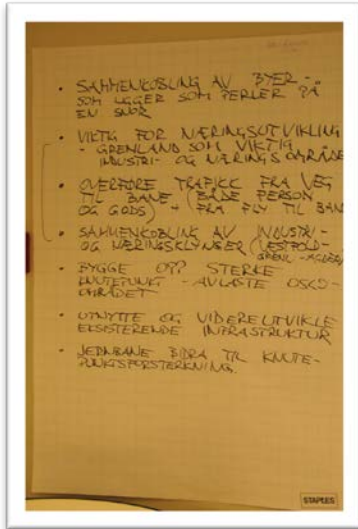 • SAMMENKOBLING AV BYER -
SOM LIGGER SOM PERLER PÅ
EN SNOR
• VIKTIG FOR NÆRINGSUTVIKLING
- GRENLAND SOM VIKTIG
INDUSTRI- OG NÆRINGSOMRÅDE
• OVERFØRE TRAFIKK FRA VEG
TIL BANE (BÅDE PERSON
OG GODS) + FRA FLY TIL BANE
• SAMMENKOBLING AV INDUSTRI-
OG NÆRINGSKLYNGER (VESTFOLD-
GRENL.-AGDER)
• BYGGE OPP STERKE
KNUTEPUNKT - AVLASTE OSLO-
OMRÅDET
• UTNYTTE OG VIDEREUTVIKLE
EKSISTERENDE INFRASTRUKTUR
• JERNBANE BIDRA TIL KNUTE-
PUNKTSFORSTERKNING.
STAPLES